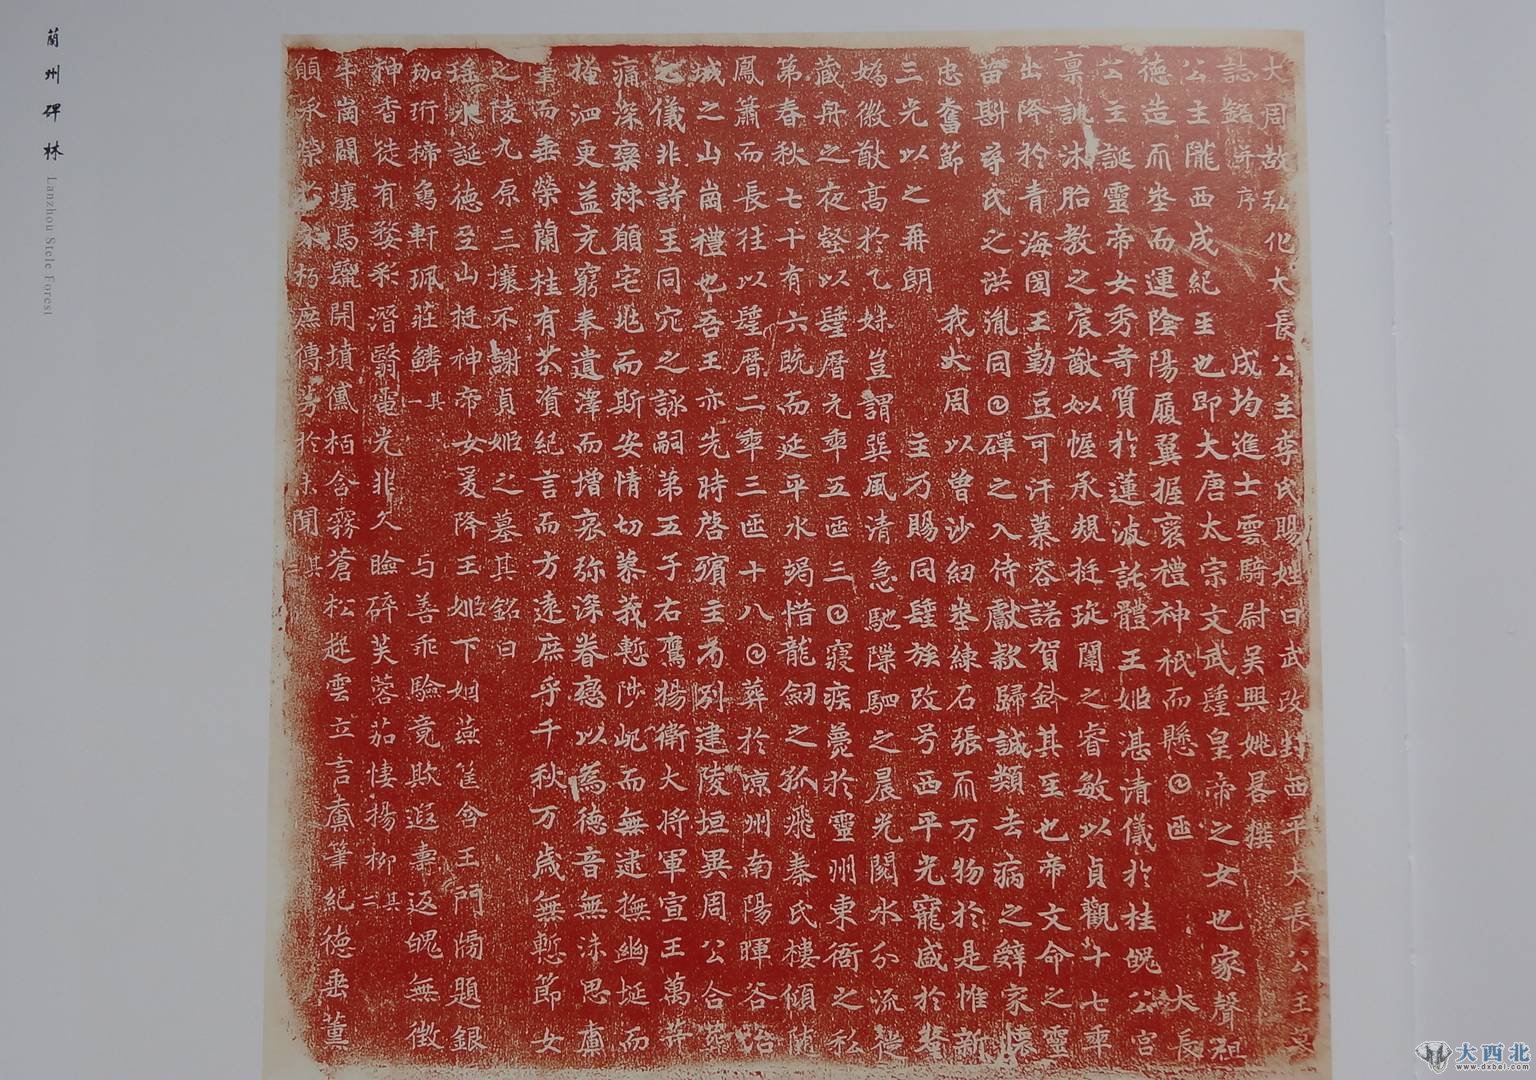 蘭州碑林
Lanzhou Stele Forest
大周故弘化大長公主李氏賜姓曰武改封西平大長公主墓
誌銘并序 成均進士雲騎尉吳興姚晷撰
公主隴西成紀主也即大唐太宗文武𨲢皇帝之女也家聲祖
德造𠀑埊而運陰陽履翼握褒禮神祇而懸𡆠𠥱 大長
公主誕靈帝女秀奇質於蓮波託體王姬湛清儀於桂魄公宮
稟訓沐胎教之宸猷姒幄承規挺琁闈之睿敏以貞觀十七𠡦
出降於青海圀王勤豆可汗慕容諾賀鉢其主也帝文命之靈
苗斟尋氏之洪胤同𡆠磾之入侍獻款歸誠類去病之辭家懷
忠奮節 我大周以曾沙紉埊練石張𠀑万物於是惟新
三光以之再朗 主乃賜同𨲢族改号西平光寵盛於釐
媯徽猷高於乙妹豈謂巽風清急馳隟駟之晨光閱水分流徙
藏舟之夜壑以𨲢曆元𠡦五𠥱三𡆠寢疾薨於靈州東衙之私
第春秋七十有六既而延平水竭惜龍劒之孤飛秦氏樓傾隨
鳳簫而長往以𨲢曆二𠡦三𠥱十八𡆠葬於涼州南陽暉谷冶
城之山崗禮也吾王亦先時啓殯主乃別建陵垣異周公合葬
之儀非詩主同穴之詠嗣第五子右鷹揚衛大將軍宣王萬等
痛深欒棘願宅兆而斯安情切蓼莪慙陟屺而無逮撫幽埏而
掩泗更益充窮奉遺澤而增哀弥深眷戀以為德音無沬思賡
筆而垂榮蘭桂有芬資紀言而方遠庶乎千秋万歲無慙節女
之陵九原三壤不謝貞姬之墓其銘曰
瑤水誕德巫山挺神帝女爰降王姬下姻燕筐含玉門牓題銀
珈珩椸鳥軒珮莊鱗其一 与善乖驗竟欺遐壽返魄無徵
神香徒有婺彩潛翳電光非久瞼碎芙蓉茄悽揚柳其二
牛崗闢壤馬鬣開墳黛栢含霧蒼松起雲立言賡筆紀德垂薰
願承榮於不朽庶傳芳於未聞其
大西北
www.dxbei.com